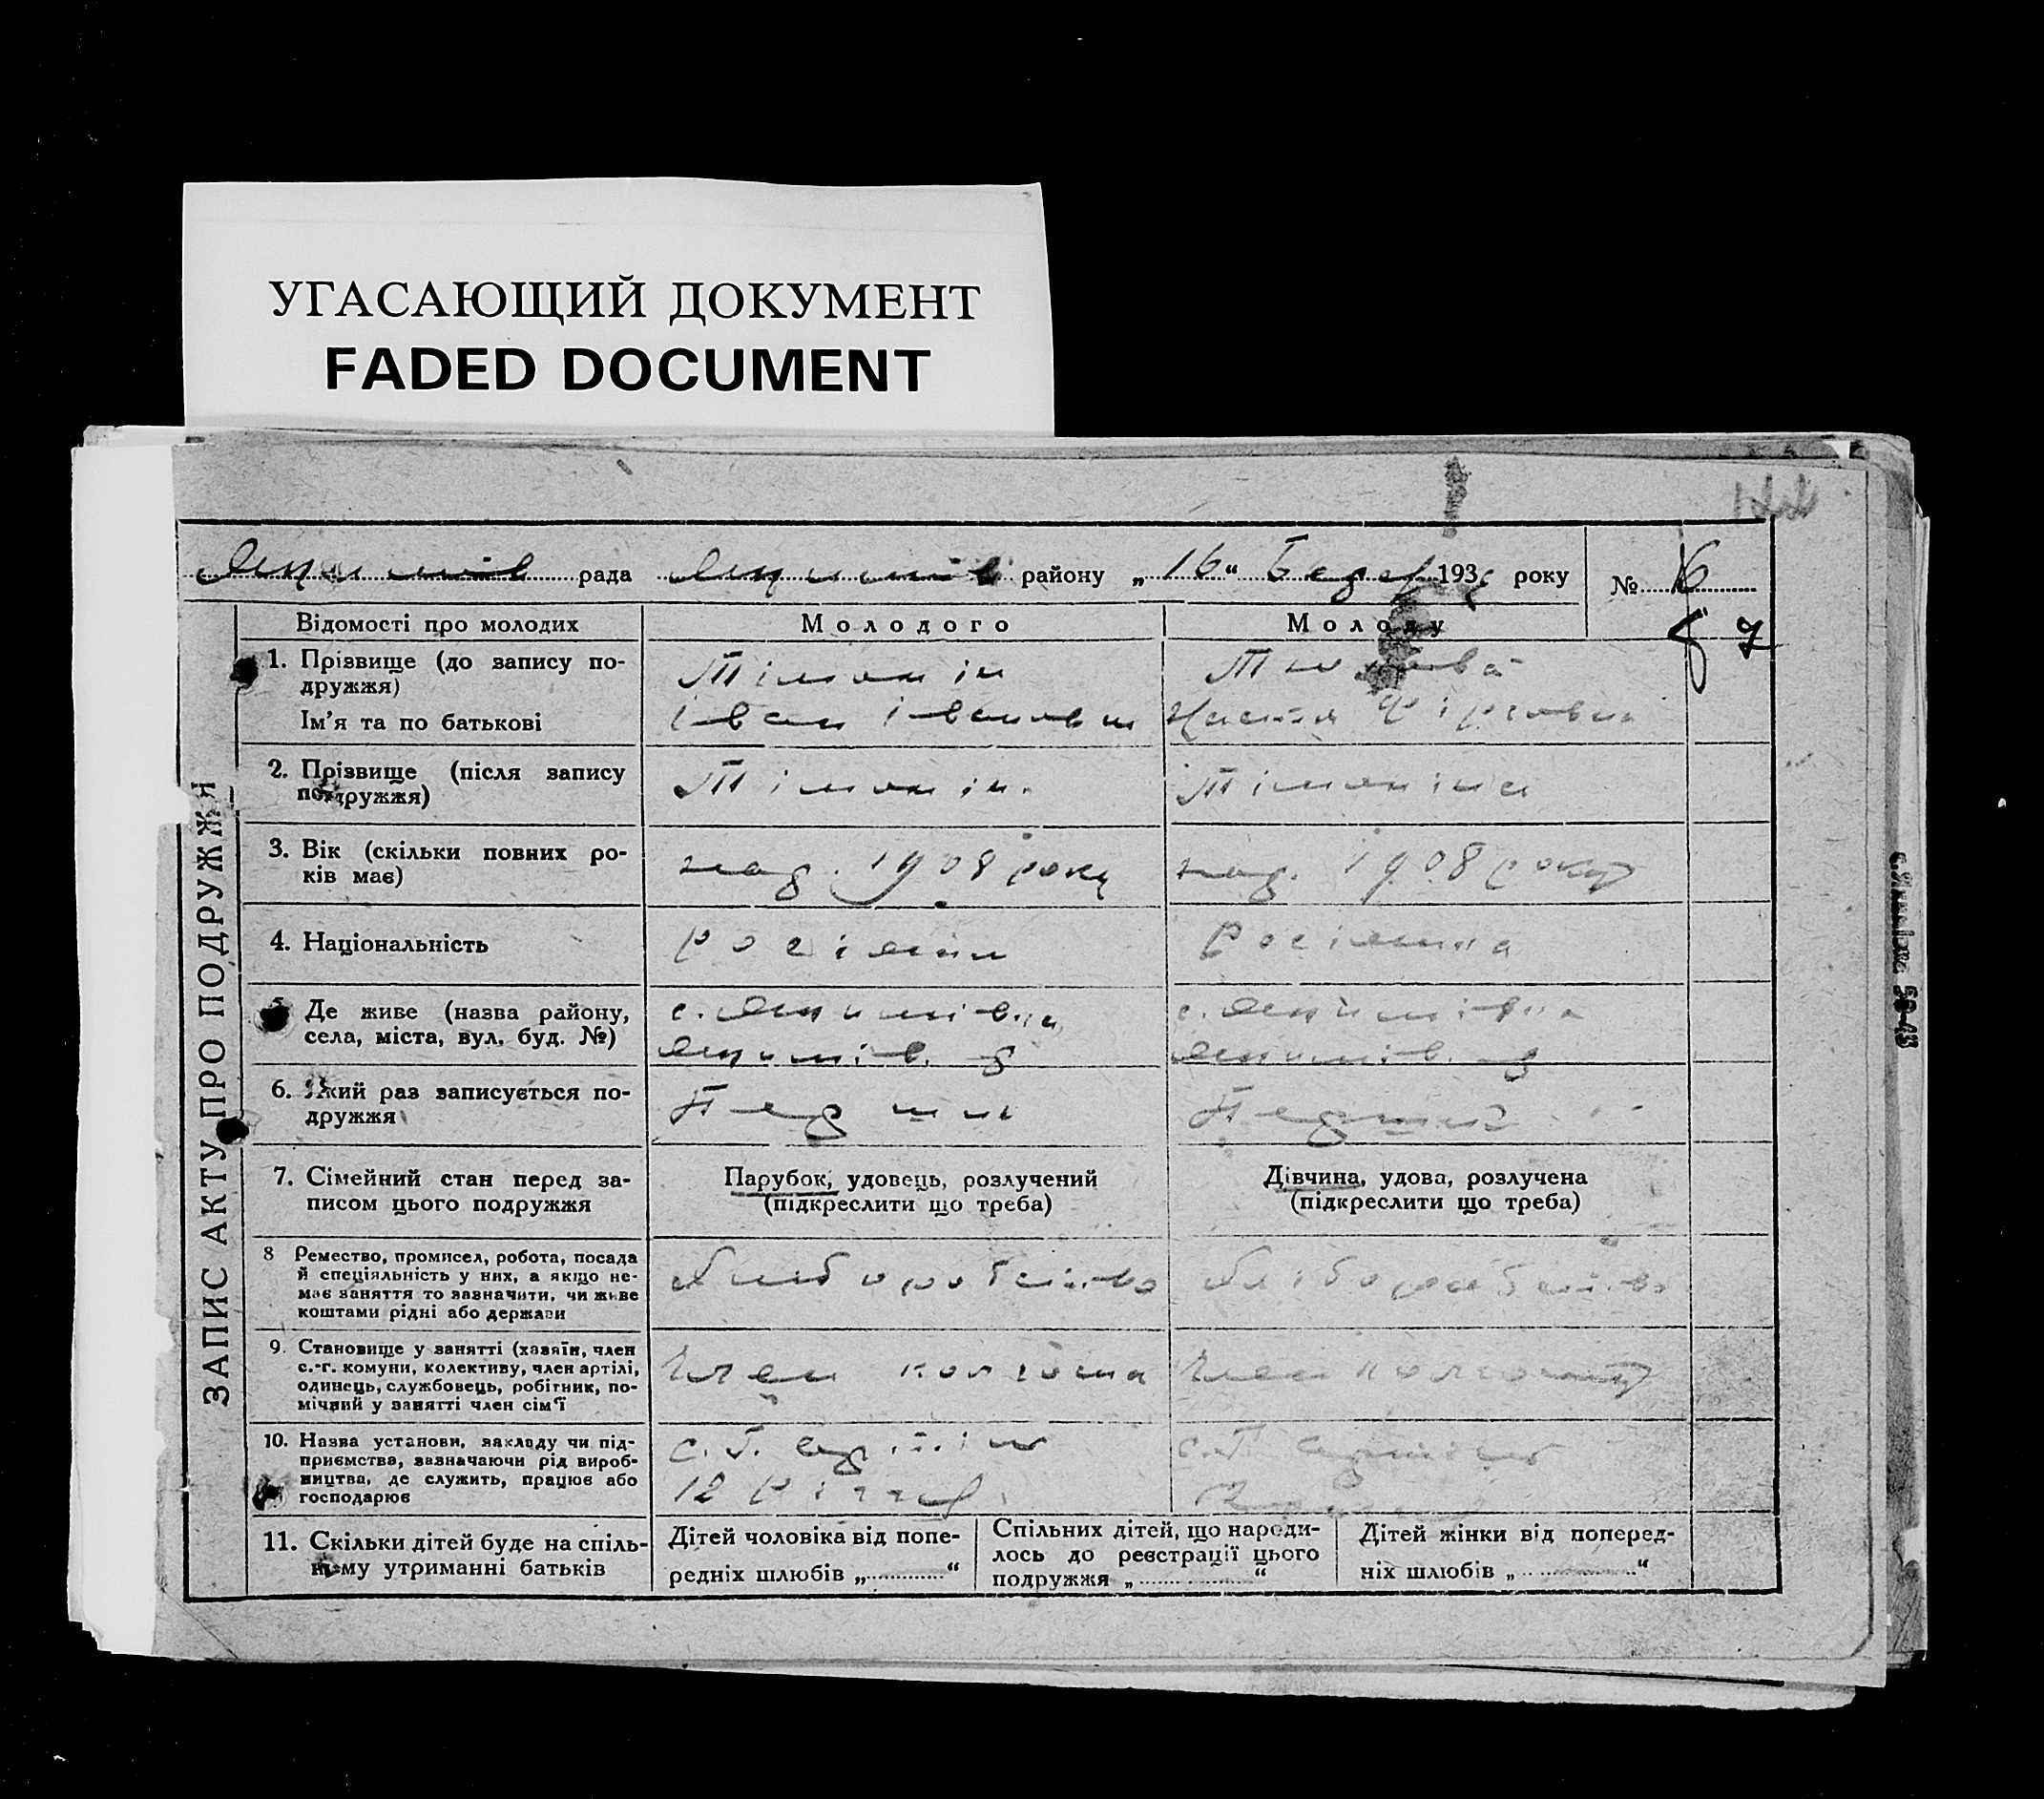 УГАСАЮЩИЙ ДОКУМЕНТ
FADED DOCUMENT
рада району „16“ 193 року № 6
7
ЗАПИС АКТУ ПРО ПОДРУЖЖЯ
Відомості про молодих Молодого Молоду
1. Прізвище (до запису по-
дружжя)
Тімонін
Ім'я та по батькові
Іван Іванович Настя
2. Прізвище (після запису
подружжя)
Тімонін. Тімоніна
3. Вік (скільки повних ро-
ків має)
нар. 1908 року нар. 1908 року
4. Національність
росіянин Росіянка
5 Де живе (назва району,
села, міста, вул. буд. №)
с. Якимівка с. Якимівка
Якимів. р Якимів. р
6. Який раз записується по-
дружжя
Перший Перший
7. Сімейний стан перед за-
писом цього подружжя
Парубок, удовець, розлучений
(підкреслити що треба)
Дівчина, удова, розлучена
(підкреслити що треба)
8 Ремество, промисел, робота, посада
й спеціяльність у них, а якщо не-
має заняття то зазначити, чи живе
коштами рідні або держави
хліборобство хліборобство
9. Становище у занятті (хазяїн, член
с.-г. комуни, колективу, член артілі,
одинець, службовець, робітник, по-
мічний у занятті член сім'ї
Член Член колгоспу
10. Назва установи, закладу чи під-
приємства, зазначаючи рід вироб-
ництва, де служить, працює або
господарює
с.г. артіль с.г. артіль
12
11. Скільки дітей буде на спіль-
ному утриманні батьків
Дітей чоловіка від попе-
редніх шлюбів „ “
Спільних дітей, що народи-
лось до реєстрації цього
подружжя „ “
Дітей жінки від поперед-
ніх шлюбів „ “